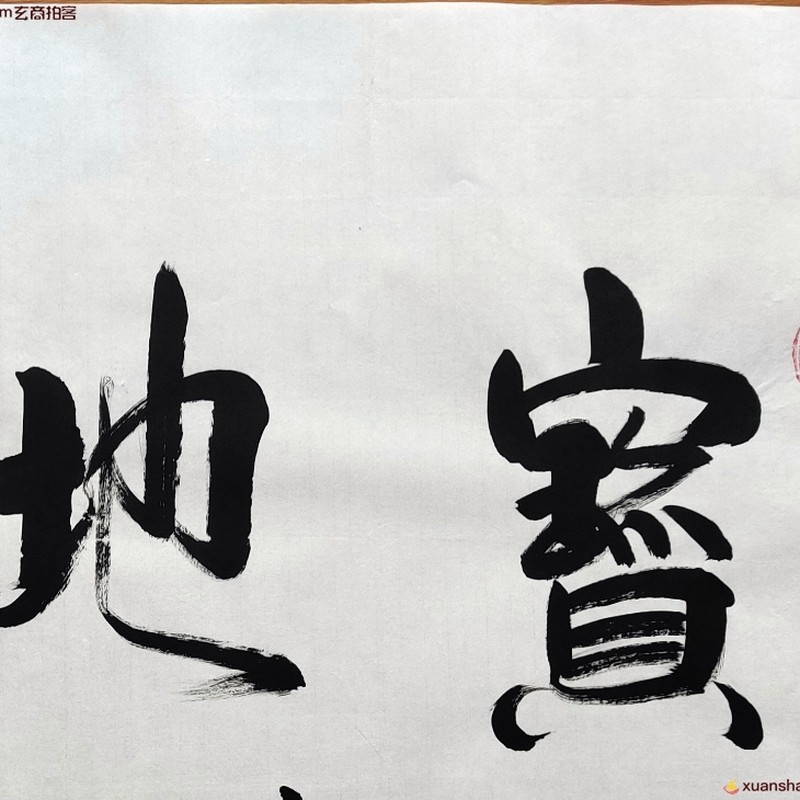 m玄商拍客
寶地
xuansha